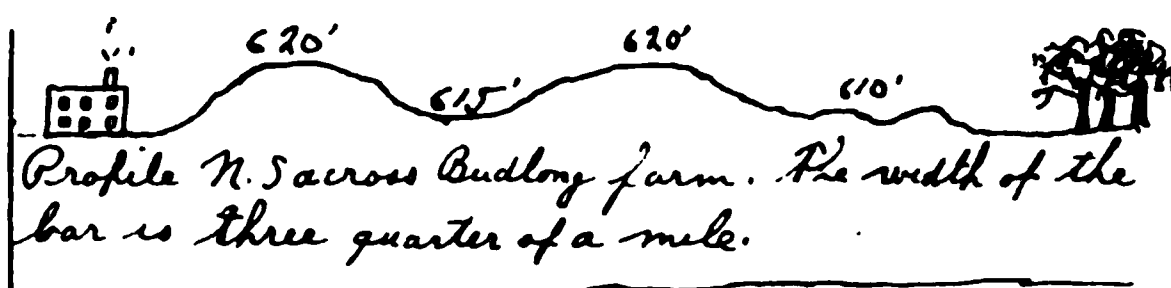 620' 615' 620' 610'
Profile N. S across Budlong farm. The width of the
bar is three quarter of a mile.